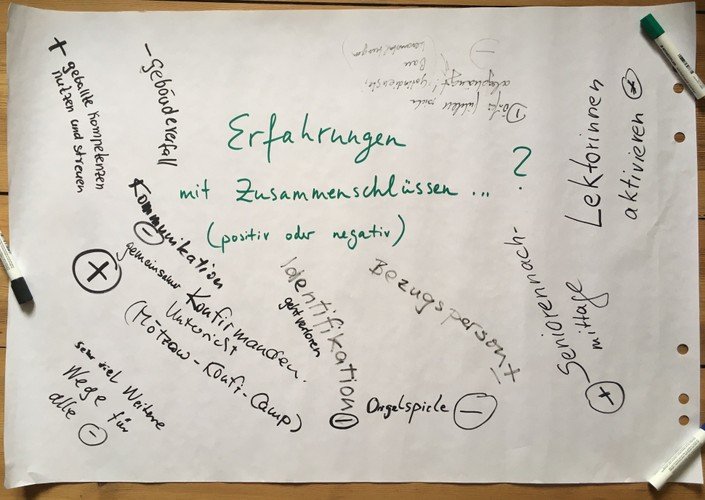 Erfahrungen
mit Zusammenschlüssen ... ?
(positiv oder negativ)
+ geballte Kompetenzen
nutzen und streuen
- Gebäudeverfall
Kommunikation
-
+ gemeinsamer Konfirmanden.
Unterricht
(Mötzow-Konfi-Camp)
sehr viel Weitere
Wege für
alle -
Identifikation -
geht verloren
Bezugsperson ±
Orgelspiele -
Seniorennach-
mittage
+
Lektorinnen
aktivieren +
Dörfer fühlen sich
abgehängt!
Bau
-